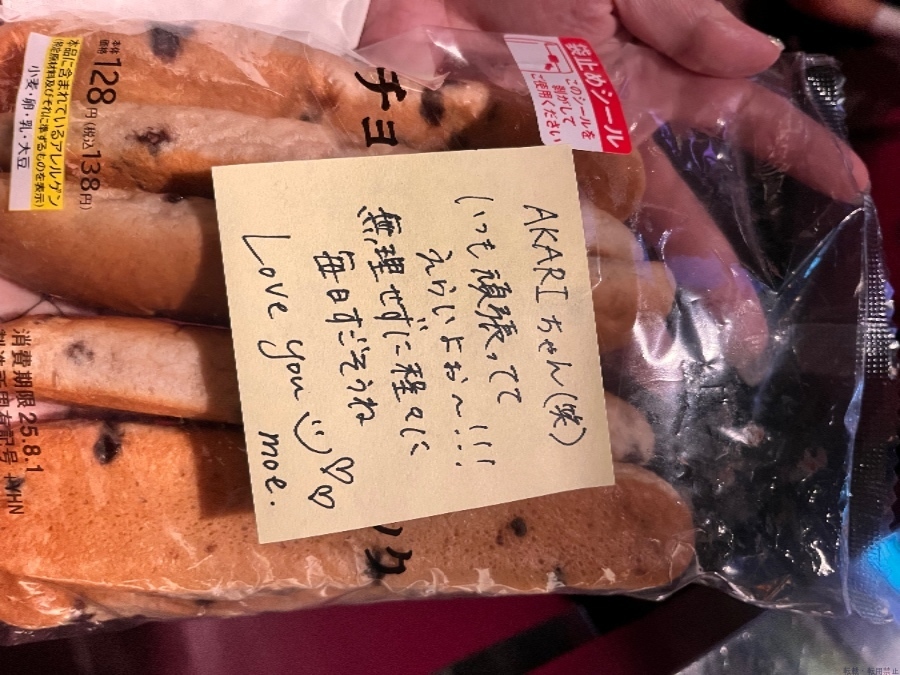 AKARIちゃん(笑)
いつも頑張ってて
えらいよぉ〜!!!
無理せずに程々に
毎日すごそうね
Love you
moe.
袋止めシール
このシールを
剥がして
ご使用ください
チョ
ック
本体
価格 128円(税込138円)
本品に含まれているアレルゲン
(特定原材料及びそれに準ずるものを表示)
小麦・卵・乳・大豆
消費期限 25.8.1
製造所固有記号 +MHN
転載・転用禁止